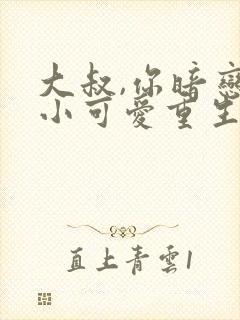 大叔,你暗戀
小可愛重生
直上青雲1